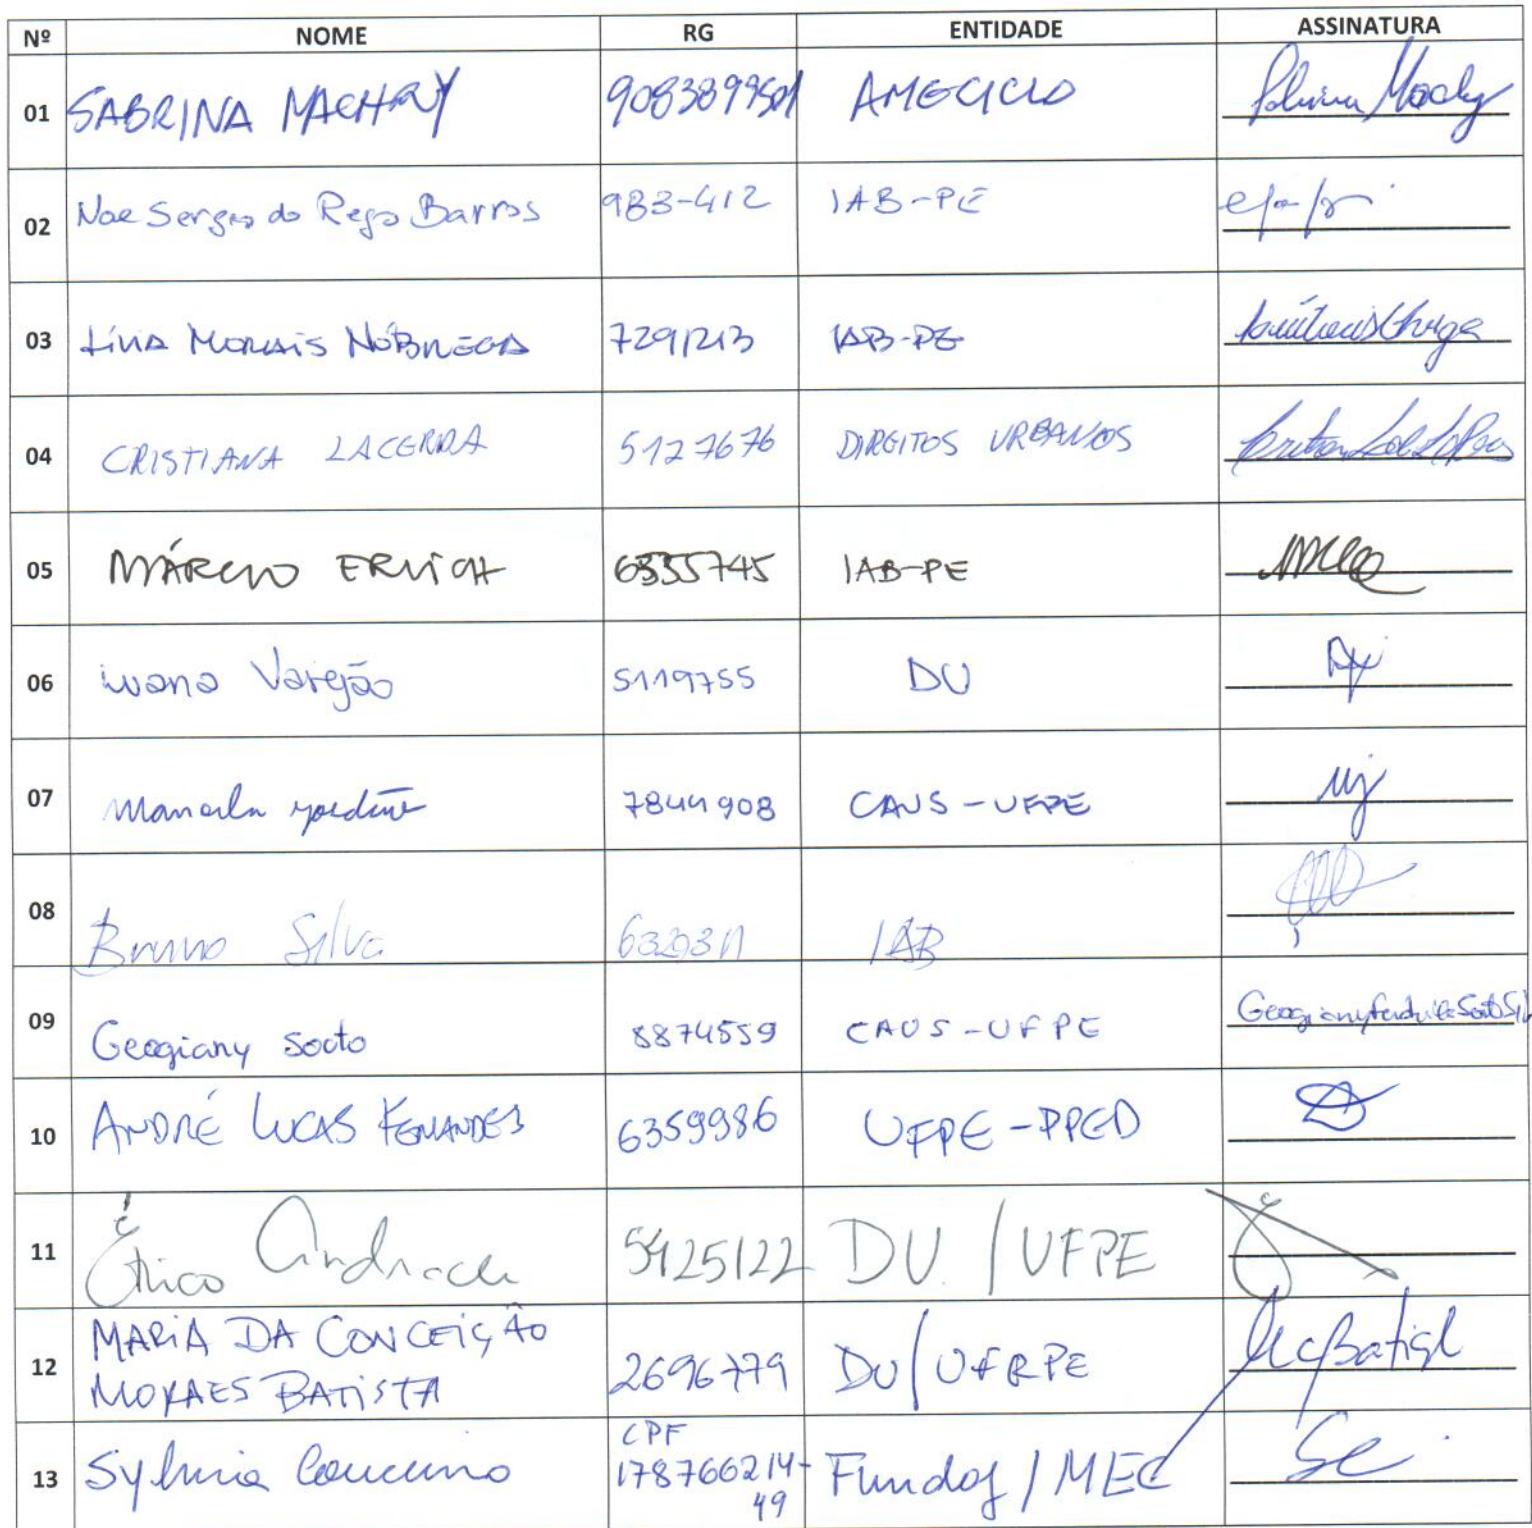 Nº NOME RG ENTIDADE ASSINATURA
01 SABRINA MACHRY 9083899501 AMECICLO
02 Noe Sergio do Rego Barros 983-412 IAB-PE
03 LÍVIA MORAIS NÓBREGA 7291213 IAB-PE
04 CRISTIANA LACERDA 5127676 DIREITOS URBANOS
05 MÁRCIO ERLICH 6335745 IAB-PE
06 Luana Varejão 5119755 DU
07 7844908 CAUS-UFPE
08 Bruno Silva IAB
09 Geogiany Souto 8874559 CAUS-UFPE
10 ANDRÉ LUCAS FERNANDES 6359986 UFPE-PPGD
11 Érico Andrade 5425122 DU/UFPE
12 MARIA DA CONCEIÇÃO
MORAES BATISTA 2696779 DU/UFRPE McBatista
CPF
13 Sylvia 178766214-
49 Fundaj/MEC